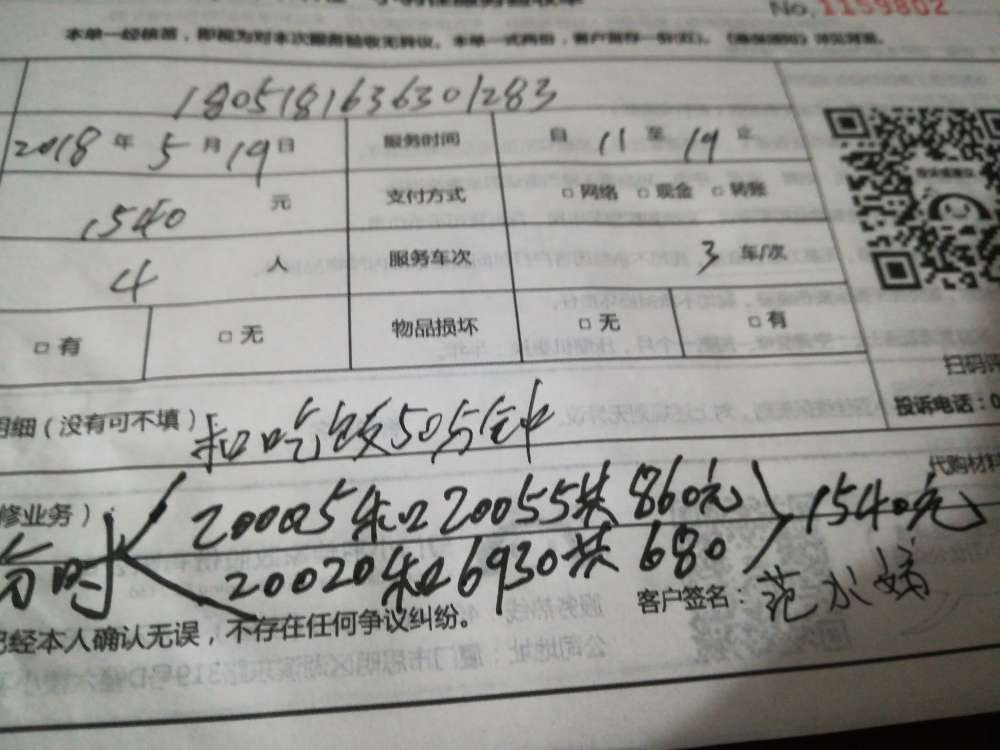 No. 1159802
本单一经核签，即视为对本次服务验收无异议。本单一式两份，客户留存一份(红)。
1805181636301283
2018年5月19日 服务时间 自11至19止
1540元 支付方式 □网络 □现金 □转账
4人 服务车次 3车/次
□有 □无 物品损坏 □无 □有
扫码评
明细（没有可不填）： 扣吃饭50分钟 投诉电话：0
代购材料
修业务）： 20005和20055共860元 1540元
20020和26930共680
客户签名：范水娣
已经本人确认无误，不存在任何争议纠纷。